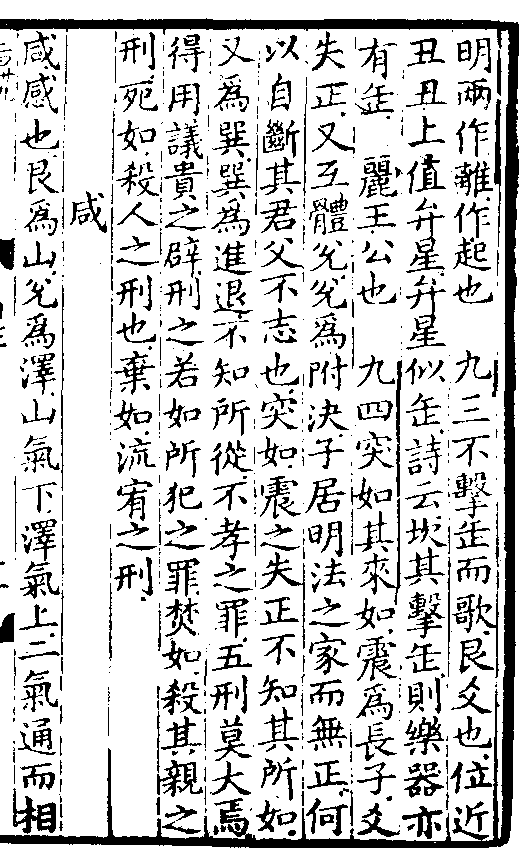 明兩作離作起也　九三不擊缶而歌艮爻也位近
丑丑上值弁星弁星似缶詩云坎其擊缶則樂器亦
有缶　麗王公也　九四突如其來如震爲長子爻
失正又互體兊兊爲附決子居明法之家而無正何
以自斷其君父不志也突如震之失正不知其所如
又爲巽巽爲進退不知所從不孝之罪五刑莫大焉
得用議貴之辟刑之若如所犯之罪焚如殺其親之
刑死如殺人之刑也棄如流宥之刑
咸
咸感也艮爲山兊爲澤山氣下澤氣上二氣通而相